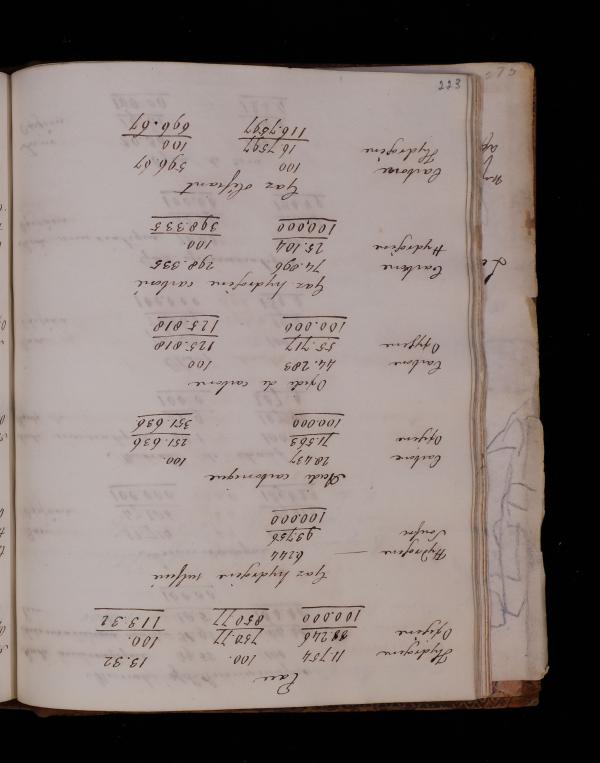 223
Eau
Hydrogene 11.754 100. 13.32
Oxigene 88.246 750.77 100.
100.000 850.77 113.32
Gaz hydrogene sulfuré
Hydrogene — 6244
Soufre 93.756
100.000
Acide carbonique
Carbone 28.437 100.
Oxigene 71.563 251.636
100.000 351.636
Oxide de carbone
Carbone 44.283 100
Oxigene 55.717 125.818
100.000 125.818
Gaz hydrogene carboné
Carbone 74.896 298.335
Hydrogene 25.104 100
100,000 398.335
Gaz oléfiant
Carbone 100 596.67
Hydrogène 16.7597 100
116.7597 696.67